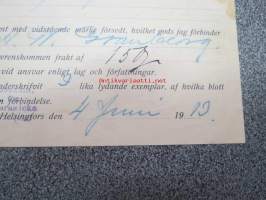 ent med vidstående märke försedt, hvilket gods jag förbinder
verenskommen frakt af 150
vid ansvar enligt lag och författningar.
nderskrifvit 3 lika lydande exemplar, af hvilka blott
n förbindelse.
Helsingfors den 4 Juni 1913
antikvariaatti.net